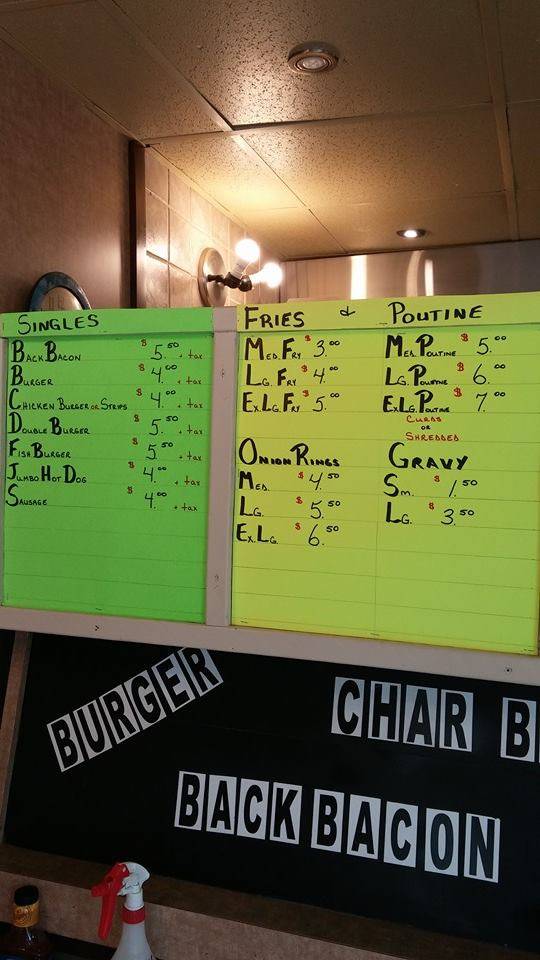 SINGLES
BACK BACON $ 5.50 + tax
BURGER $ 4.00 + tax
CHICKEN BURGER OR STRIPS $ 4.00 + tax
DOUBLE BURGER $ 5.50 + tax
FISH BURGER $ 5.50 + tax
JUMBO HOT DOG $ 4.00 + tax
SAUSAGE $ 4.00 + tax
FRIES & POUTINE
MED. FRY $ 3.00
LG. FRY $ 4.00
EX. LG. FRY $ 5.00
MED. POUTINE $ 5.00
LG. POUTINE $ 6.00
EX LG. POUTINE $ 7.00
CURDS
OR
SHREDDED
ONION RINGS
MED. $ 4.50
LG. $ 5.50
EX. LG. $ 6.50
GRAVY
SM. $ 1.50
LG. $ 3.50
BURGER
CHAR B
BACK BACON